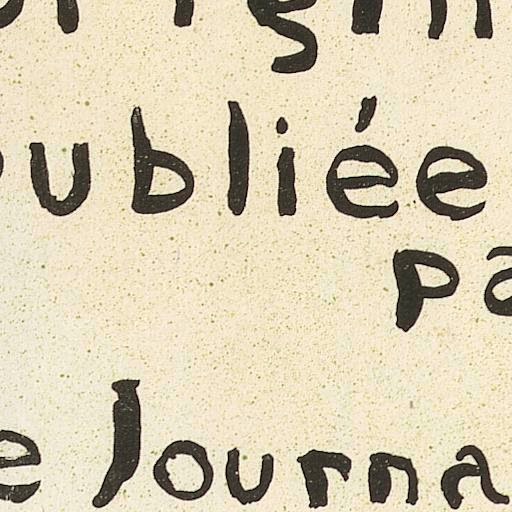 publiée
pa
e Journa